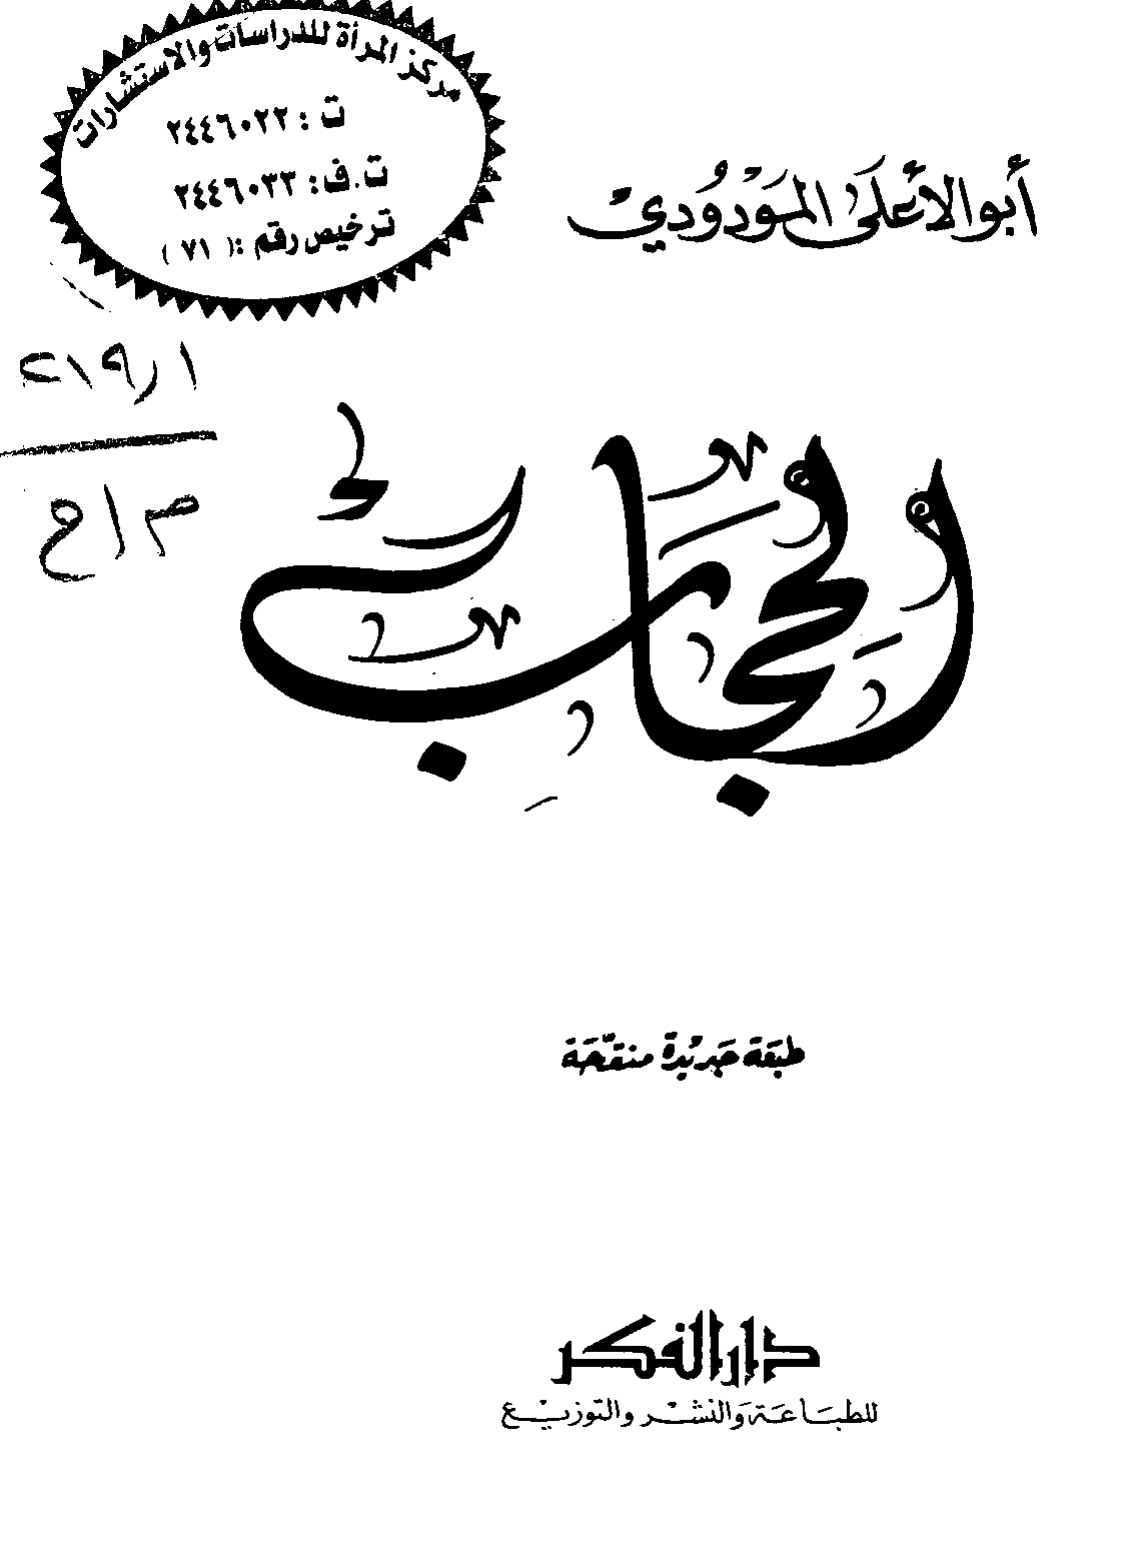 مركز المرأة للدراسات والاستشارات
ت : ٢٤٤٦٠٢٢
ت.ف: ٢٤٤٦٠٣٣
ترخيص رقم :( ٧١ )
أبو الأعلى المَودُودي
٢١٩ر١
م ا ح
الحجاب
طبعَة جَديْدة منقّحَة
دار الفكر
للطبَاعَة وَالنشْر والتوزيْع